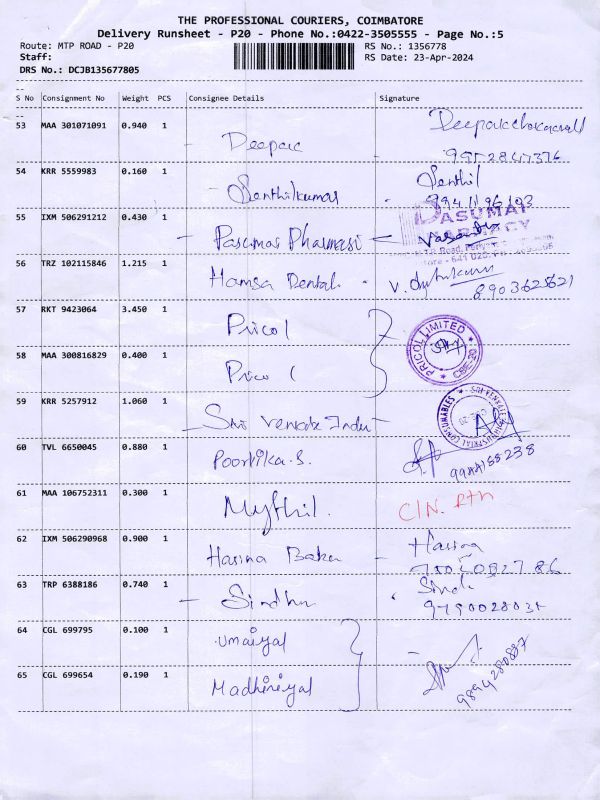 THE PROFESSIONAL COURIERS, COIMBATORE
Delivery Runsheet - P20 - Phone No.:0422-3505555 - Page No.:5
Route: MTP ROAD - P20
RS No.: 1356778
Staff:
RS Date: 23-Apr-2024
DRS No.: DCJB135677805
S No Consignment No Weight PCS Consignee Details Signature
53 MAA 301071091 0.940 1 Deepak
54 KRR 5559983 0.160 1 Senthilkumar Senthil
55 IXM 506291212 0.430 1 Pasumai Pharmasi
56 TRZ 102115846 1.215 1 Hamsa Dental 8903625621
57 RKT 9423064 3.450 1 Pricol
PRICOL LIMITED CBE-20
58 MAA 300816829 0.400 1 Pricol
59 KRR 5257912 1.060 1 Sri Venkate Indu
60 TVL 6650045 0.880 1 Poorvika.S.
61 MAA 106752311 0.300 1 Mythil. CIN. Rtn
62 IXM 506290968 0.900 1 Harina Baka Harina
63 TRP 6388186 0.740 1 Sindhu
64 CGL 699795 0.100 1 Umaiyal
65 CGL 699654 0.190 1 Madhiniyal 9894280887